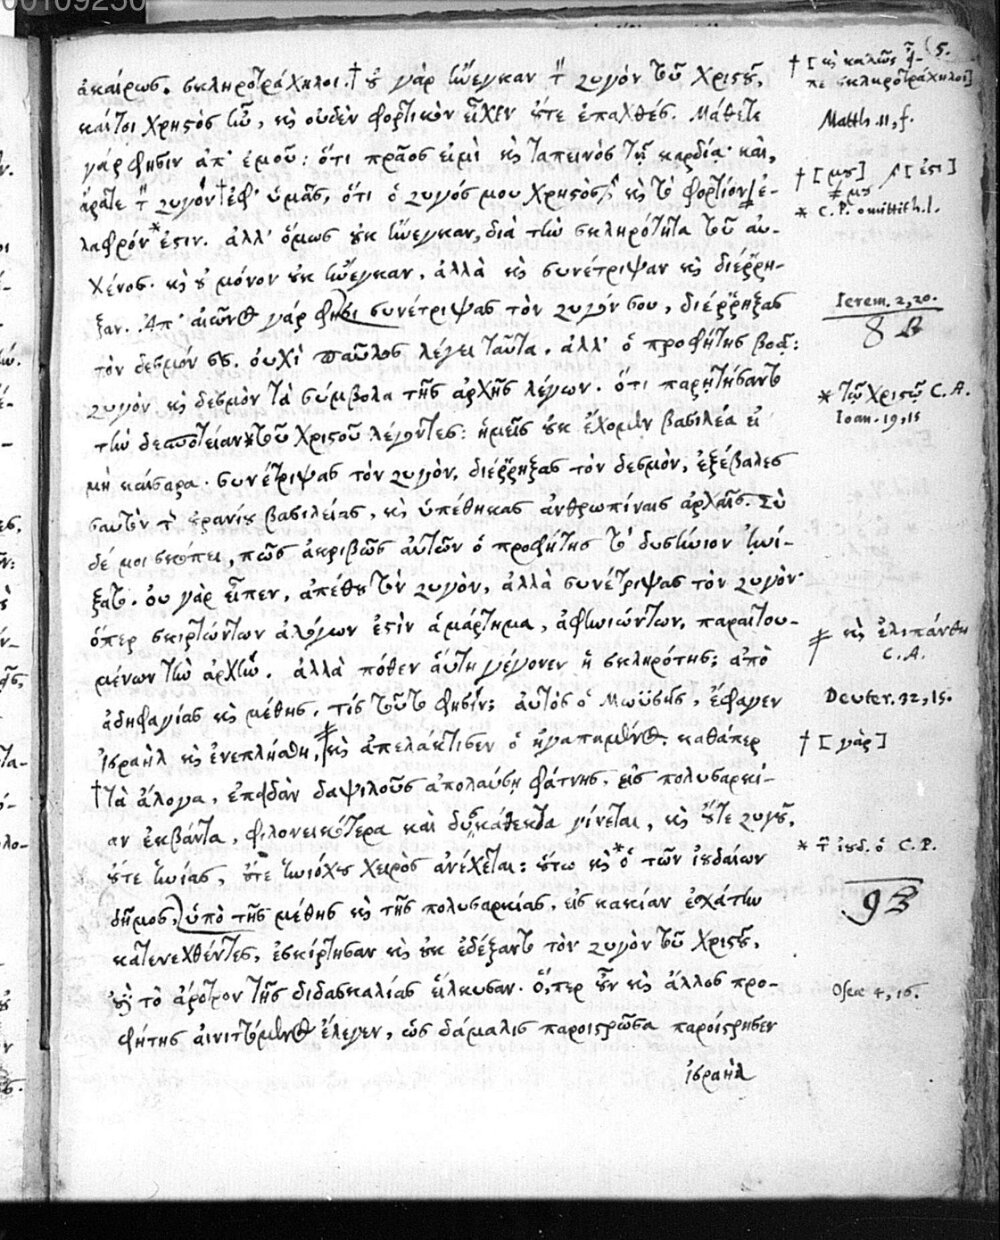 00109250
5.
ἀκαίρως. σκληροτράχηλοι. † ȣ̓ γὰρ ἤνεγκαν τ̃ ζυγὸν τοῦ Χριστȣ͂,
καίτοι χρηστὸς ἦν, κ̀ς οὐδὲν φορτικὸν εἶχεν ȣ̓́τε ἐπαχθές. Μάθετε
γάρ φησιν ἀπ' ἐμοῦ: ὅτι πρᾶος εἰμὶ κ̀ς ταπεινὸς τῇ καρδίᾳ· καὶ,
ἄρατε τ̃ ζυγὸν † ἐφ' ὑμᾶς, ὅτι ὁ ζυγός μου χρηστὸς, κ̀ς τὸ φορτίον ἐ-
λαφρόν * ἐστιν. ἀλλ' ὅμως ȣ̓κ ἤνεγκαν, διὰ τὴν σκληρότητα τοῦ αὐ-
χένος· κ̀ς ȣ̓ μόνον ȣ̓κ ἤνεγκαν, ἀλλὰ κ̀ς συνέτριψαν κ̀ς διέῤῥη-
ξαν. Ἀπ' αἰῶνος γάρ φησι συνέτριψας τὸν ζυγόν σου, διέῤῥηξας
τὸν δεσμόν σȣ. ȣ̓χὶ παῦλος λέγει ταῦτα, ἀλλ' ὁ προφήτης βοᾷ:
ζυγὸν κ̀ς δεσμὸν τὰ σύμβολα τῆς ἀρχῆς λέγων. ὅτι παρῃτήσαντο
τὴν δεσποτείαν * τοῦ Χριστοῦ λέγοντες: ἡμεῖς ȣ̓κ ἔχομεν βασιλέα εἰ
μὴ καίσαρα. συνέτριψας τὸν ζυγὸν, διέῤῥηξας τὸν δεσμὸν, ἐξέβαλες
σαυτὸν τ̃ ȣ̓ρανίȣ βασιλείας, κ̀ς ὑπέθηκας ἀνθρωπίναις ἀρχαῖς. Σὺ
δέ μοι σκόπει, πῶς ἀκριβῶς αὐτῶν ὁ προφήτης τὸ δυσήνιον ᾐνί-
ξατο. ȣ̓ γὰρ εἶπεν, ἀπέθȣ τὸν ζυγὸν, ἀλλὰ συνέτριψας τὸν ζυγὸν·
ὅπερ σκιρτώντων ἀλόγων ἐστὶν ἁμάρτημα, ἀφηνιώντων, παραιτου-
μένων τὴν ἀρχήν. ἀλλὰ πόθεν αὕτη γέγονεν ἡ σκληρότης; ἀπὸ
ἀδηφαγίας κ̀ς μέθης. τίς τοῦτό φησιν; αὐτὸς ὁ Μωϋσῆς, ἔφαγεν
ἰσραὴλ κ̀ς ἐνεπλήσθη, κ̀ς ἀπελάκτισεν ὁ ἠγαπημένος. καθάπερ
† τὰ ἄλογα, ἐπειδὰν δαψιλοῦς ἀπολαύσῃ φάτνης, εἰς πολυσαρκί-
αν ἐκβάντα, φιλονεικότερα καὶ δυσκάθεκτα γίνεται, κ̀ς ȣ̓́τε ζυγȣ͂,
ȣ̓́τε ἡνίας, ȣ̓́τε ἡνιόχȣ χειρὸς ἀνέχεται: ȣ̔́τω κ̀ς * ὁ τῶν ἰȣδαίων
δῆμος, ὑπὸ τῆς μέθης κ̀ς τῆς πολυσαρκίας, εἰς κακίαν ἐσχάτην
κατενεχθέντες, ἐσκίρτησαν κ̀ς ȣ̓κ ἐδέξαντο τὸν ζυγὸν τοῦ Χριστȣ͂,
ȣ̓δὲ τὸ ἄροτρον τῆς διδασκαλίας εἵλκυσαν. ὅπερ ȣ̓͂ν κ̀ς ἄλλος προ-
φήτης αἰνιττόμενος ἔλεγεν, ὡς δάμαλις παροιστρῶσα παροίστρησεν
ἰσραὴλ
† [κ̀ς καλῶς εἶ-
πε σκληροτράχηλοι]
Matth. 11, f.
† [μȣ] [ἐστι]
μȣ
* C.P. omittit h.l.
Ierem. 2, 20.
8 B
* τῷ Χριστῷ C.A.
Ioan. 19, 15
κ̀ς ἐλιπάνθη
C.A.
Deuter. 32, 15.
† [γὰρ]
* τ̃ ἰȣδ. ὁ C.P.
9 B
Osea 4, 16.